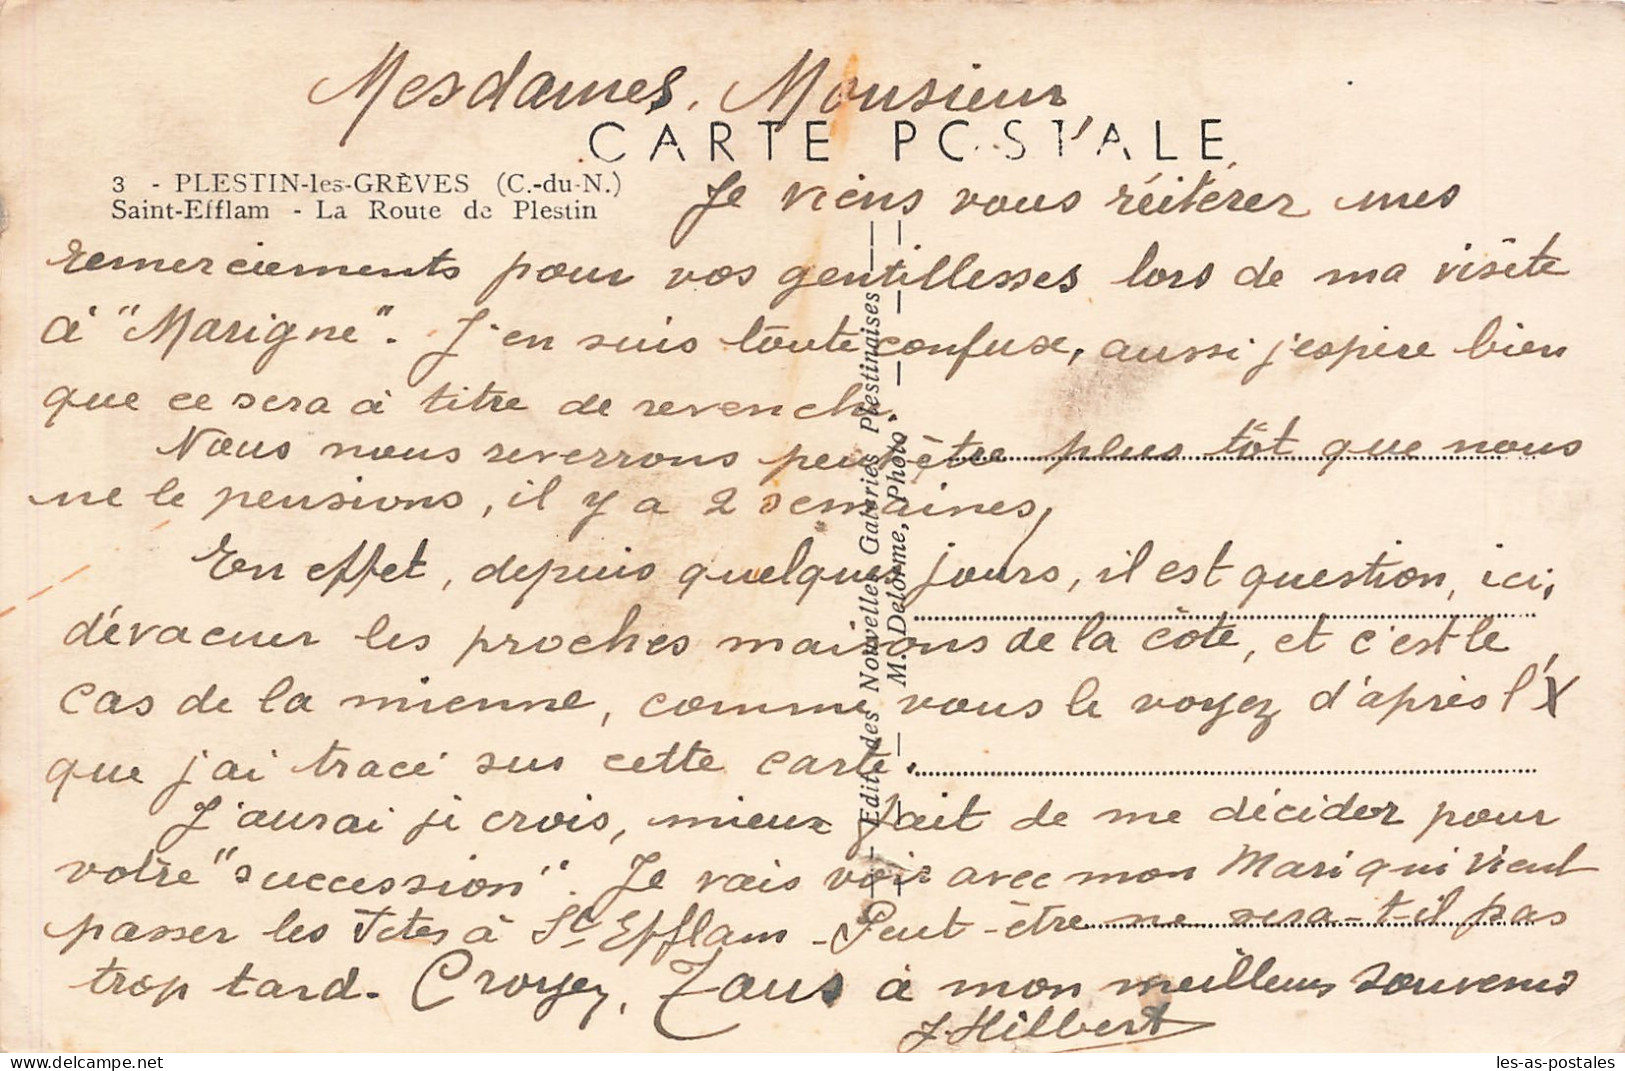 Mesdames, Monsieur
CARTE POSTALE
3 - PLESTIN-les-GRÈVES (C.-du-N.)
Saint-Efflam - La Route de Plestin
Je viens vous réitérer mes
remerciements pour vos gentillesses lors de ma visite
à "Marigne". J'en suis toute confuse, aussi j'espère bien
que ce sera à titre de revenche.
Nous nous reverrons peut-être plus tôt que nous
ne le pensions, il y a 2 semaines,
En effet, depuis quelques jours, il est question, ici,
d'évacuer les proches maisons de la côte, et c'est le
cas de la mienne, comme vous le voyez d'après l'X
que j'ai tracé sur cette carte.
J'aurai je crois, mieux fait de me décider pour
votre "succession". Je vais voir avec mon Mari qui vient
passer les fêtes à St Efflam - Peut-être ne sera-t-il pas
trop tard. Croyez, Tous à mon meilleur souvenir
J. Hilbert
Edit. des Nouvelles Galeries Plestinaises
M. Delorme, Photo
les-as-postales